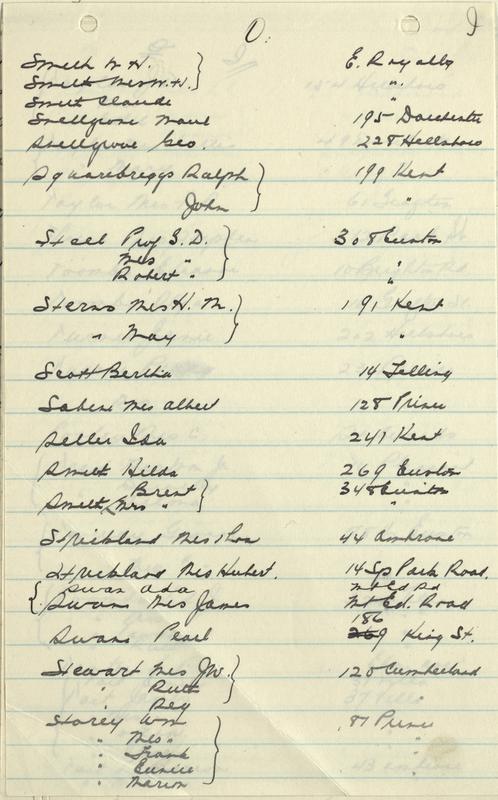 Smith W. H. } E. Royalty
Smith Mrs W. H. "
Smith Claude "
Snellgrove Maud 195 Dorchester
Snellgrove Geo 228 Hillsboro
Squarebriggs Ralph } 199 Kent
John "
Steel Prof S. D. } 308 Euston
Mrs "
Robert " "
Sterns Mrs H. M. } 191 Kent
" May "
Scott Bertha 14
Sabine Mrs Albert 128 Prince
Seller Ida 241 Kent
Smith Hilda 269 Euston
Brent } 348 Euston
Smith Mrs " "
Strickland Mrs 44 Ambrose
Strickland Mrs Hubert. 14 Sp Park Road.
Swan Ada Mt Ed Rd
Swans Mrs James Mt Ed. Road
186
Swans Pearl 269 King St.
Stewart Mrs J.W. } 120 Cumberland
" Ruth
" Reg
Storey Wm } 81 Prince
" Mrs " "
" Frank
" Eunice
" Marion